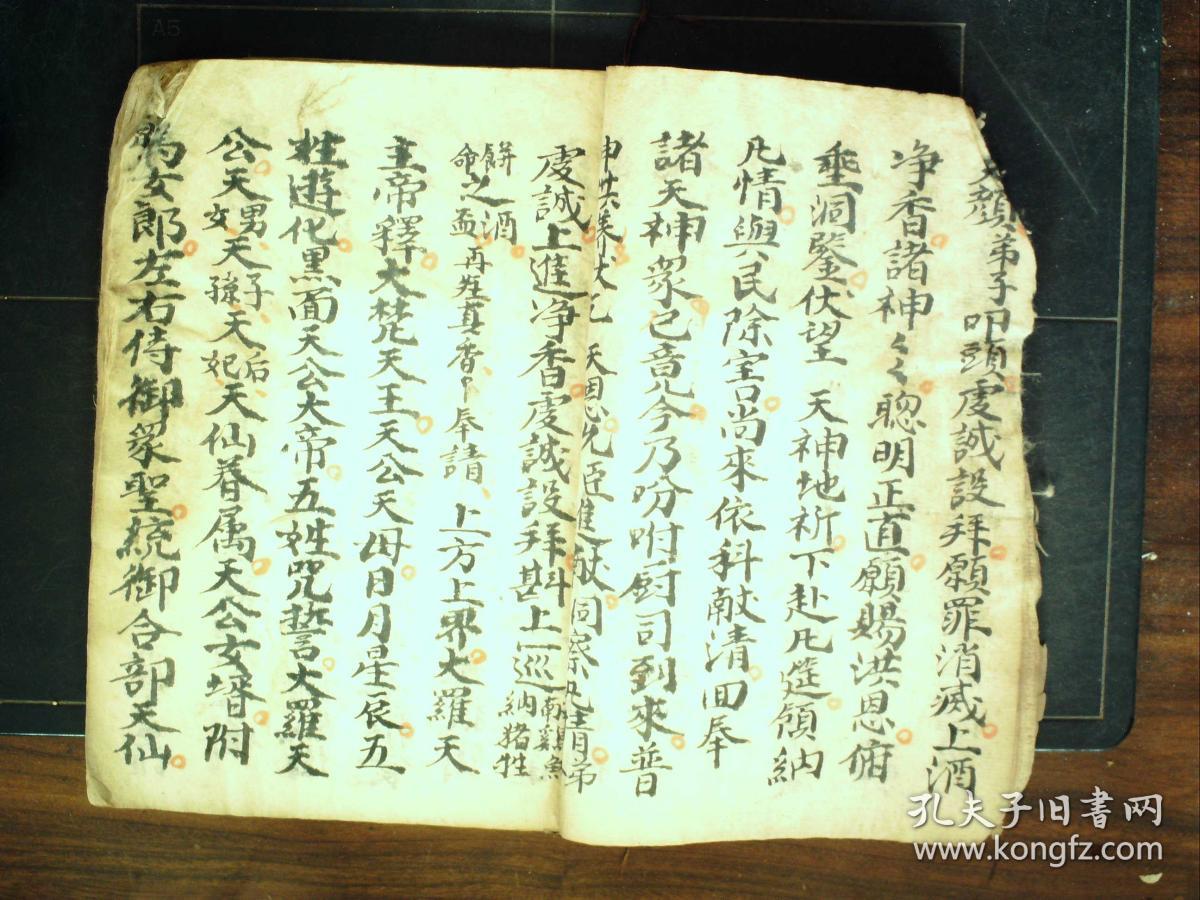 顏弟子叩頭虔誠設拜願罪消滅上酒
净香諸神々々聰明正直願賜洪恩俯
垂洞鑒伏望 天神地祈下赴凡筵領納
凡情與民除害尚來依科献清回奉
諸天神眾已竟凡今乃吩咐厨司到來普
虔誠上進净香虔誠設拜斟上一巡献雞魚納猪牲
餅酒命之盃再炷真香々奉請上方上界大羅天
主帝釋大梵天王天公天母日月星辰五
柱遊化黑面天公大帝五姓咒誓大羅天
公天男女天子孫天后妃天仙眷属天公女壻附
馬女郎左右侍御眾聖統御合部天仙
A5
孔夫子旧書网
www.kongfz.com